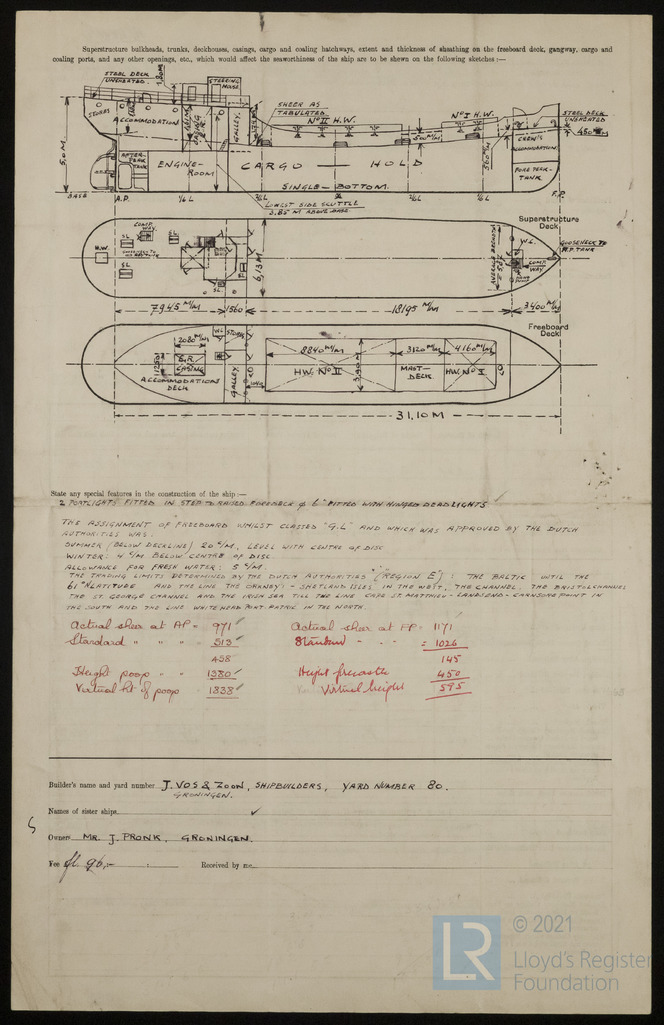 Superstructure bulkheads, trunks, deckhouses, casings, cargo and coaling hatchways, extent and thickness of sheathing on the freeboard deck, gangway, cargo and
coaling ports, and any other openings, etc., which would affect the seaworthiness of the ship are to be shewn on the following sketches:—
STEEL DECK
UNSHEATED.
STEERING
HOUSE
SHEER AS
TABULATED.
No II H.W.
No I H.W.
STEEL DECK
UNSHEATED
450 M/M
STORES
ACCOMMODATION
GALLEY.
CREW'S
ACCOMMODATION
5.0 M.
AFTER-
PEAK
TANK
ENGINE-
ROOM
CARGO — HOLD
FORE PEAK-
TANK.
SINGLE-BOTTOM.
BASE
A.P.
1/6 L
2/6 L
1/6 L
F.P.
LOWEST SIDE SCUTTLE
3.85 M ABOVE BASE
Superstructure
Deck
COMP.
WAY.
M.W.
SL
SL
SL
SL
6,13 M
W.C.
COMP.
WAY
GOOSENECK TO
F.P. TANK
7945 M/M
1560
18195 M/M
3400 M/M
Freeboard
Deck
2080 M/M
W.C.
STORES
E.R.
CASING
ACCOMMODATION
DECK
GALLEY
8840 M/M
HW. No II
3120 M/M
MAST-
DECK
4160 M/M
HW. No I
31.10 M
State any special features in the construction of the ship :—
2 PORTLIGHTS FITTED IN STEP & RAISED FOREDECK φ 6" FITTED WITH HINGED DEADLIGHTS
THE ASSIGNMENT OF FREEBOARD WHILST CLASSED "G.L" AND WHICH WAS APPROVED BY THE DUTCH
AUTHORITIES WAS:
SUMMER (BELOW DECKLINE) 20 c/M, LEVEL WITH CENTRE OF DISC
WINTER: 4 c/M BELOW CENTRE OF DISC.
ALLOWANCE FOR FRESH WATER: 5 c/M.
THE TRADING LIMITS DETERMINED BY THE DUTCH AUTHORITIES ("REGION E"): THE BALTIC UNTIL THE
61° N LATITUDE AND THE LINE THE ORKNEY'S - SHETLAND ISLES IN THE WEST, THE CHANNEL, THE BRISTOLCHANNEL
THE ST. GEORGE CHANNEL AND THE IRISH SEA TILL THE LINE CAPE ST. MATTHIEU - LANDSEND - CARNSORE POINT IN
THE SOUTH AND THE LINE WHITEHEAD PORT-PATRIC IN THE NORTH.
Actual sheer at AP = 971
Actual sheer at FP = 1171
Standard " " " 513
Standard - - = 1026
458
145
Height poop " " 1380
Height forecastle 450
Virtual ht of poop 1838
Virtual height 595
Builder's name and yard number J. VOS & ZOON, SHIPBUILDERS, YARD NUMBER 80.
GRONINGEN.
Names of sister ships
Owners MR. J. PRONK, GRONINGEN.
Fee fl. 96,-
Received by me
LR
© 2021
Lloyd's Register
Foundation